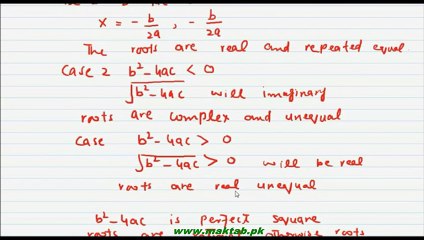 x = - b/2a , - b/2a
The roots are real and repeated equal.
Case 2 b² - 4ac < 0
√b² - 4ac will imaginary
roots are complex and unequal
Case b² - 4ac > 0
√b² - 4ac > 0 will be real
roots are real unequal
b² - 4ac is perfect square
roots are otherwise roots
www.maktab.pk